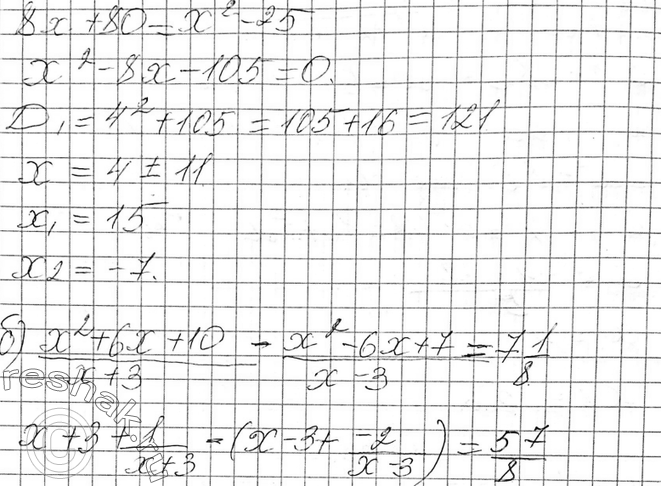 8x+80=x²-25
x²-8x-105=0.
D₁=4²+105=105+16=121
x=4±11
x₁=15
x2=-7.
б) (x²+6x+10)/(x+3) - (x²-6x+7)/(x-3) = 7 1/8
x+3+1/(x+3) - (x-3+ -2/(x-3)) = 5 7/8
reshak.ru